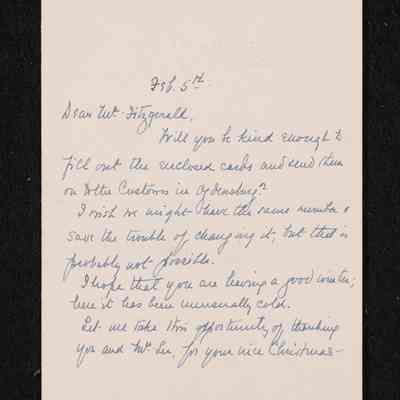 Feb. 5th
Dear Mr. Fitzgerald,
Will you be kind enough to
fill out the enclosed cards and send them
on to the Customs in Ogdensburg?
I wish we might have the same number &
save the trouble of changing it, but that is
probably not possible.
I hope that you are having a good winter;
here it has been unusually cold.
Let me take this opportunity of thanking
you and Mr. Lee, for your nice Christmas-